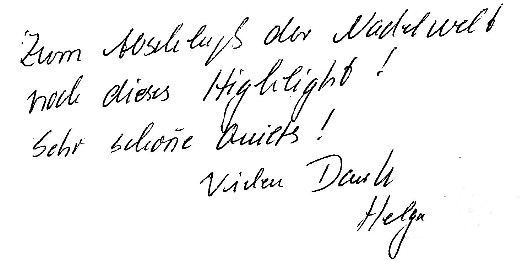 Zum Abschluß der Nadelwelt
noch dieses Highlight!
Sehr schöne Quilts!
Vielen Dank
Helga